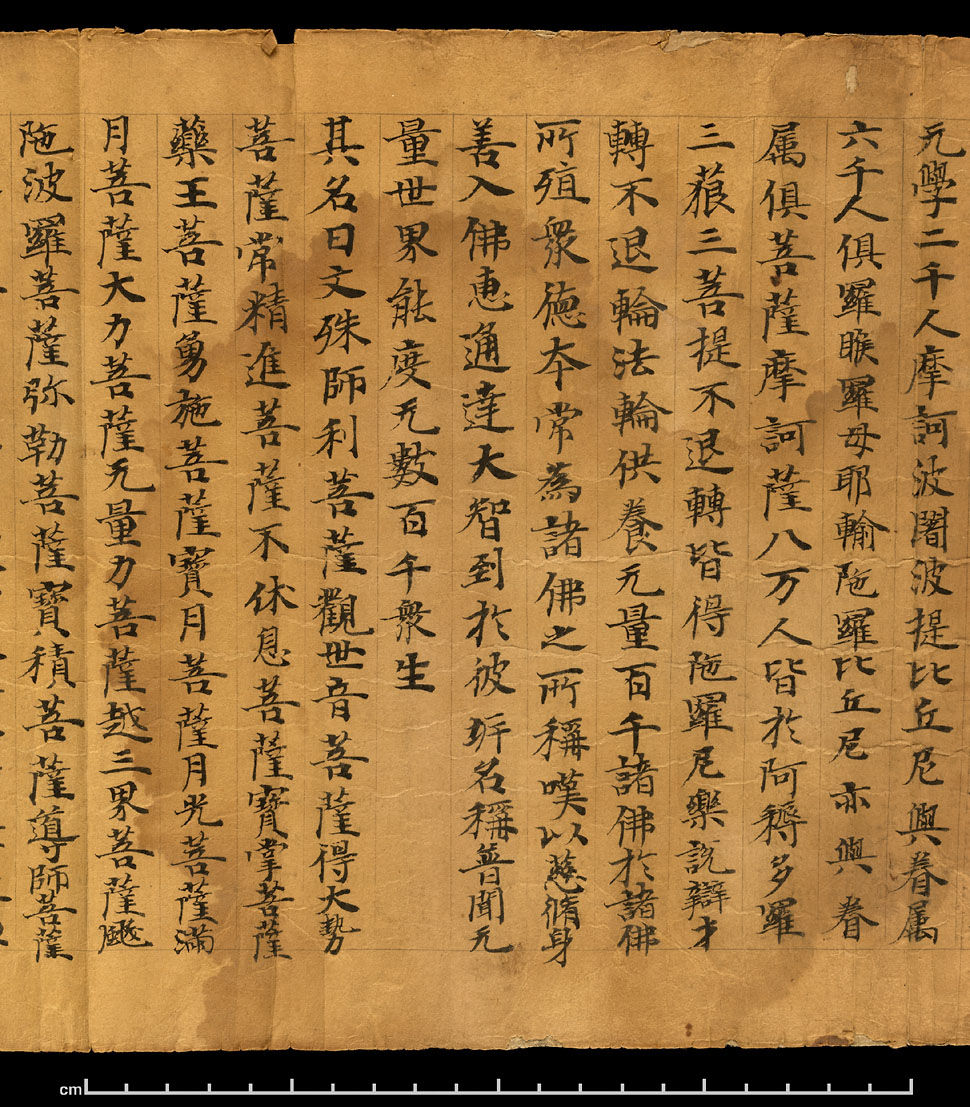 无學二千人摩訶波闍波提比丘尼與眷属
六千人俱羅睺羅母耶輸陁羅比丘尼亦與眷
属俱菩薩摩訶薩八万人皆於阿耨多羅
三藐三菩提不退轉皆得陁羅尼樂說辯才
轉不退輪法輪供養无量百千諸佛於諸佛
所殖衆德夲常為諸佛之所稱嘆以慈脩身
善入佛恵通達大智到於彼岸名稱普聞无
量世界能度无數百千衆生
其名曰文殊師利菩薩觀世音菩薩得大勢
菩薩常精進菩薩不休息菩薩寶掌菩薩
藥王菩薩勇施菩薩寶月菩薩月光菩薩滿
月菩薩大力菩薩无量力菩薩越三界菩薩颰
陁波羅菩薩弥勒菩薩寶積菩薩導師菩薩
cm